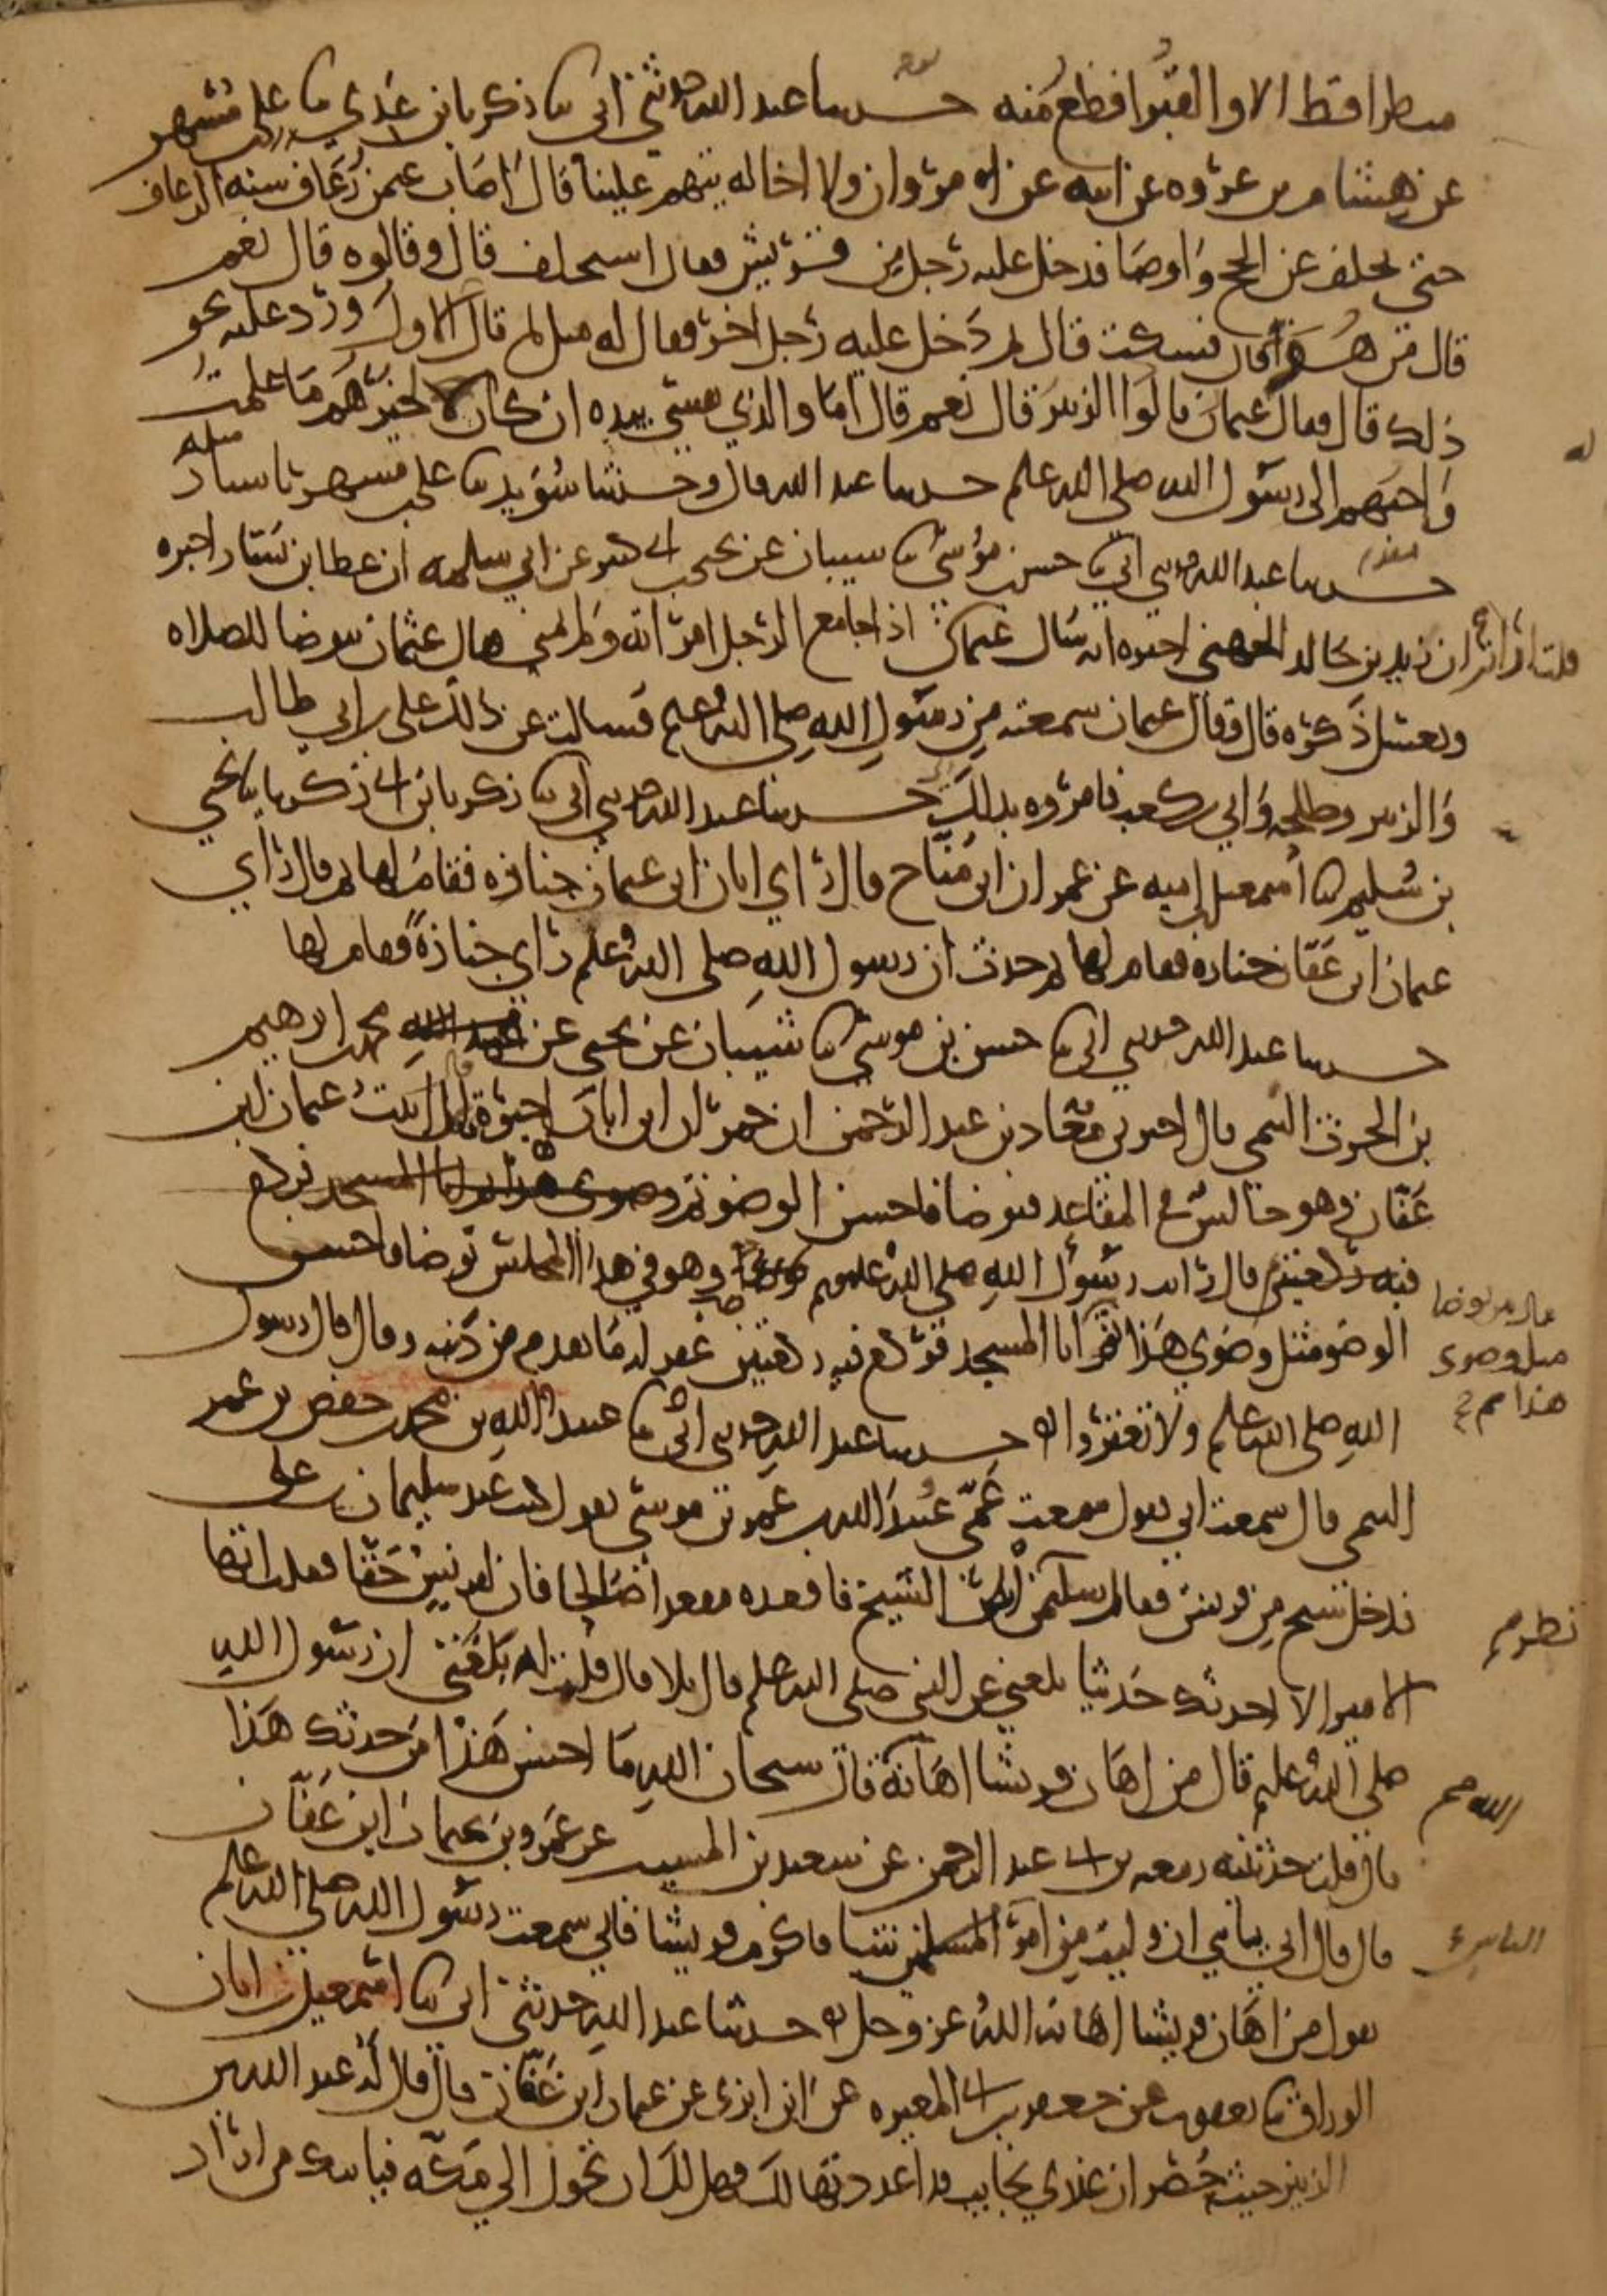 منظرا قط الا والقبر افظع منه حدثنا عبد الله حدثني ابي ثنا زكريا بن عدي ثنا علي بن مسهر
عن هشام بن عروة عن ابيه عن مروان ولا اخاله يتهم علينا قال اصاب عثمن رعاف سنة الرعاف
حتى تخلف عن الحج واوصا فدخل عليه رجل من قريش فقال استخلف قال وقالوه قال نعم
قال من هو قال فسكت قال ثم دخل عليه رجل اخر فقال له مثل ما قال الاول ورد عليه نحو
ذلك قال فقال عثمان قالوا الزبير قال نعم قال اما والذي نفسي بيده ان كان لاخيرهم ما علمت
واحبهم الى رسول الله صلى الله علم حدثنا عبد الله قال وحدثنا سويد ثنا علي بن مسهر باسناد
مثله
حدثنا عبد الله حدثني ابي ثنا حسن بن موسى ثنا شيبان عن يحيى بن ابي كثير عن ابي سلمه ان عطا بن يسار اخبره
ان زيد بن خالد الجهني اخبره انه سال عثمان قلت ارايت اذا جامع الرجل امراته ولم يمني فقال عثمان يتوضا للصلاه
ويغسل ذكره قال وقال عثمان سمعته من رسول الله صلى الله علم فسالت عن ذلك علي بن ابي طالب
والزبير وطلحه وابي بن كعب فامروه بذلك حدثنا عبد الله حدثني ابي ثنا زكريا بن ابي زكريا ثنا يحيى
بن سليم ثنا اسمعيل بن اميه عن عمران ابن مناح قال راى ابان ابن عثمان جنازه فقام لها ثم قال راى
عثمان ابن عفان جنازه فقام لها ثم حدث ان رسول الله صلى الله علم راى جنازة فقام لها
حدثنا عبد الله حدثني ابي ثنا حسن بن موسى ثنا شيبان عن يحيى عن محمد بن ابرهيم
بن الحرث التيمي قال اخبرني معاذ بن عبد الرحمن ان حمران ابن ابان اخبره قال اتيت عثمان ابن
عفان وهو جالس في المقاعد فتوضا فاحسن الوضو ثم
قال رايت رسول الله صلى الله علم وهو في هذا المجلس توضا فاحسن
الوضو مثل وضوي هذا ثم اتا المسجد فركع فيه ركعتين غفر له ما تقدم من ذنبه وقال قال رسول
قال من توضا
مثل وضوى
هذا صح
الله صلى الله علم ولا تغتروا حدثنا عبد الله حدثني ابي ثنا عبيد الله بن محمد بن حفص بن عمر
التيمي قال سمعت ابي يقول سمعت عمي عبيد الله بن عمر بن موسى يقول كنت عند سليمان بن علي
فدخل شيخ من قريش فقال سليمن انظر الشيخ فاقعده مقعدا صالحا فان لقريش حقا فقلت ايها
الامير الا احدثك حديثا بلغني عن النبي صلى الله علم قال بلا قال قلت له بلغني ان رسول الله
صلى الله علم قال من اهان قريشا اهانه قال سبحان الله ما احسن هذا من حدثك هذا
الله صح
قال قلت حدثنيه ربيعه بن ابي عبد الرحمن عن سعيد بن المسيب عن عمرو بن عثمان ابن عفان
قال قال ابي يا بني ان وليت من امر شيا فاكرم قريشا فاني سمعت رسول الله صلى الله علم
الناس
يقول من اهان قريشا اهانه الله عز وجل حدثنا عبد الله حدثني ابي ثنا اسمعيل بن ابان
الوراق ثنا يعقوب عن جعفر بن ابي المغيره عن ابن ابزى عن عثمان ابن عفان قال قال له عبد الله بن
الزبير حيث حصر ان عندي نجايب قد اعددتها لك فهل لك ان تحول الي مكه فياتيك من اراد